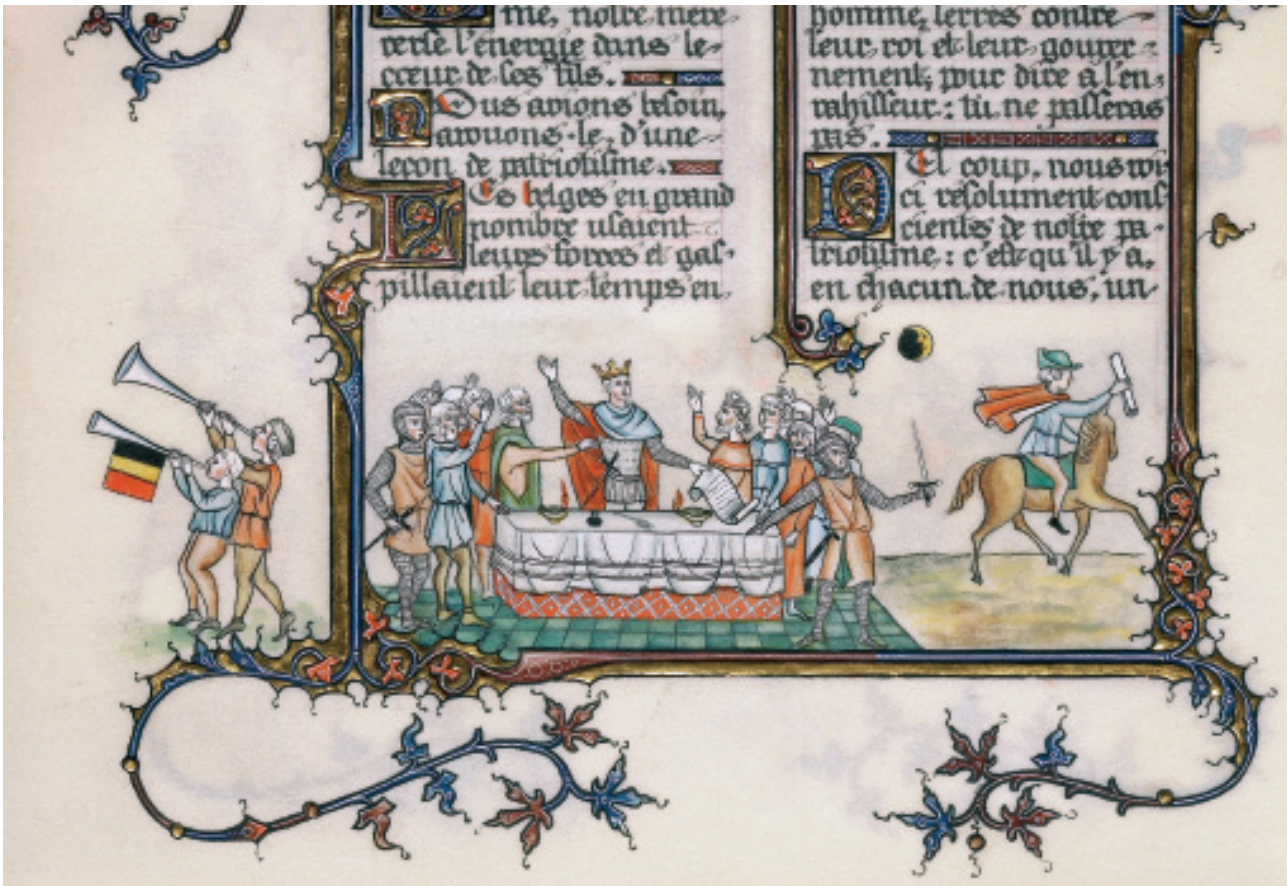 me, notre mere
verse l'énergie dans le
cœur de ses fils.
Nous avions besoin,
avouons-le, d'une
leçon de patriotisme.
Des belges en grand
nombre usaient
leurs forces et gas-
pillaient leur temps en
homme, serres contre
leur roi et leur gouver-
nement, pour dire à l'en-
vahisseur : tu ne passeras
pas.
coup, nous voi
ci résolument cons
cients de notre pa-
triotisme : c'est qu'il y a,
en chacun de nous, un